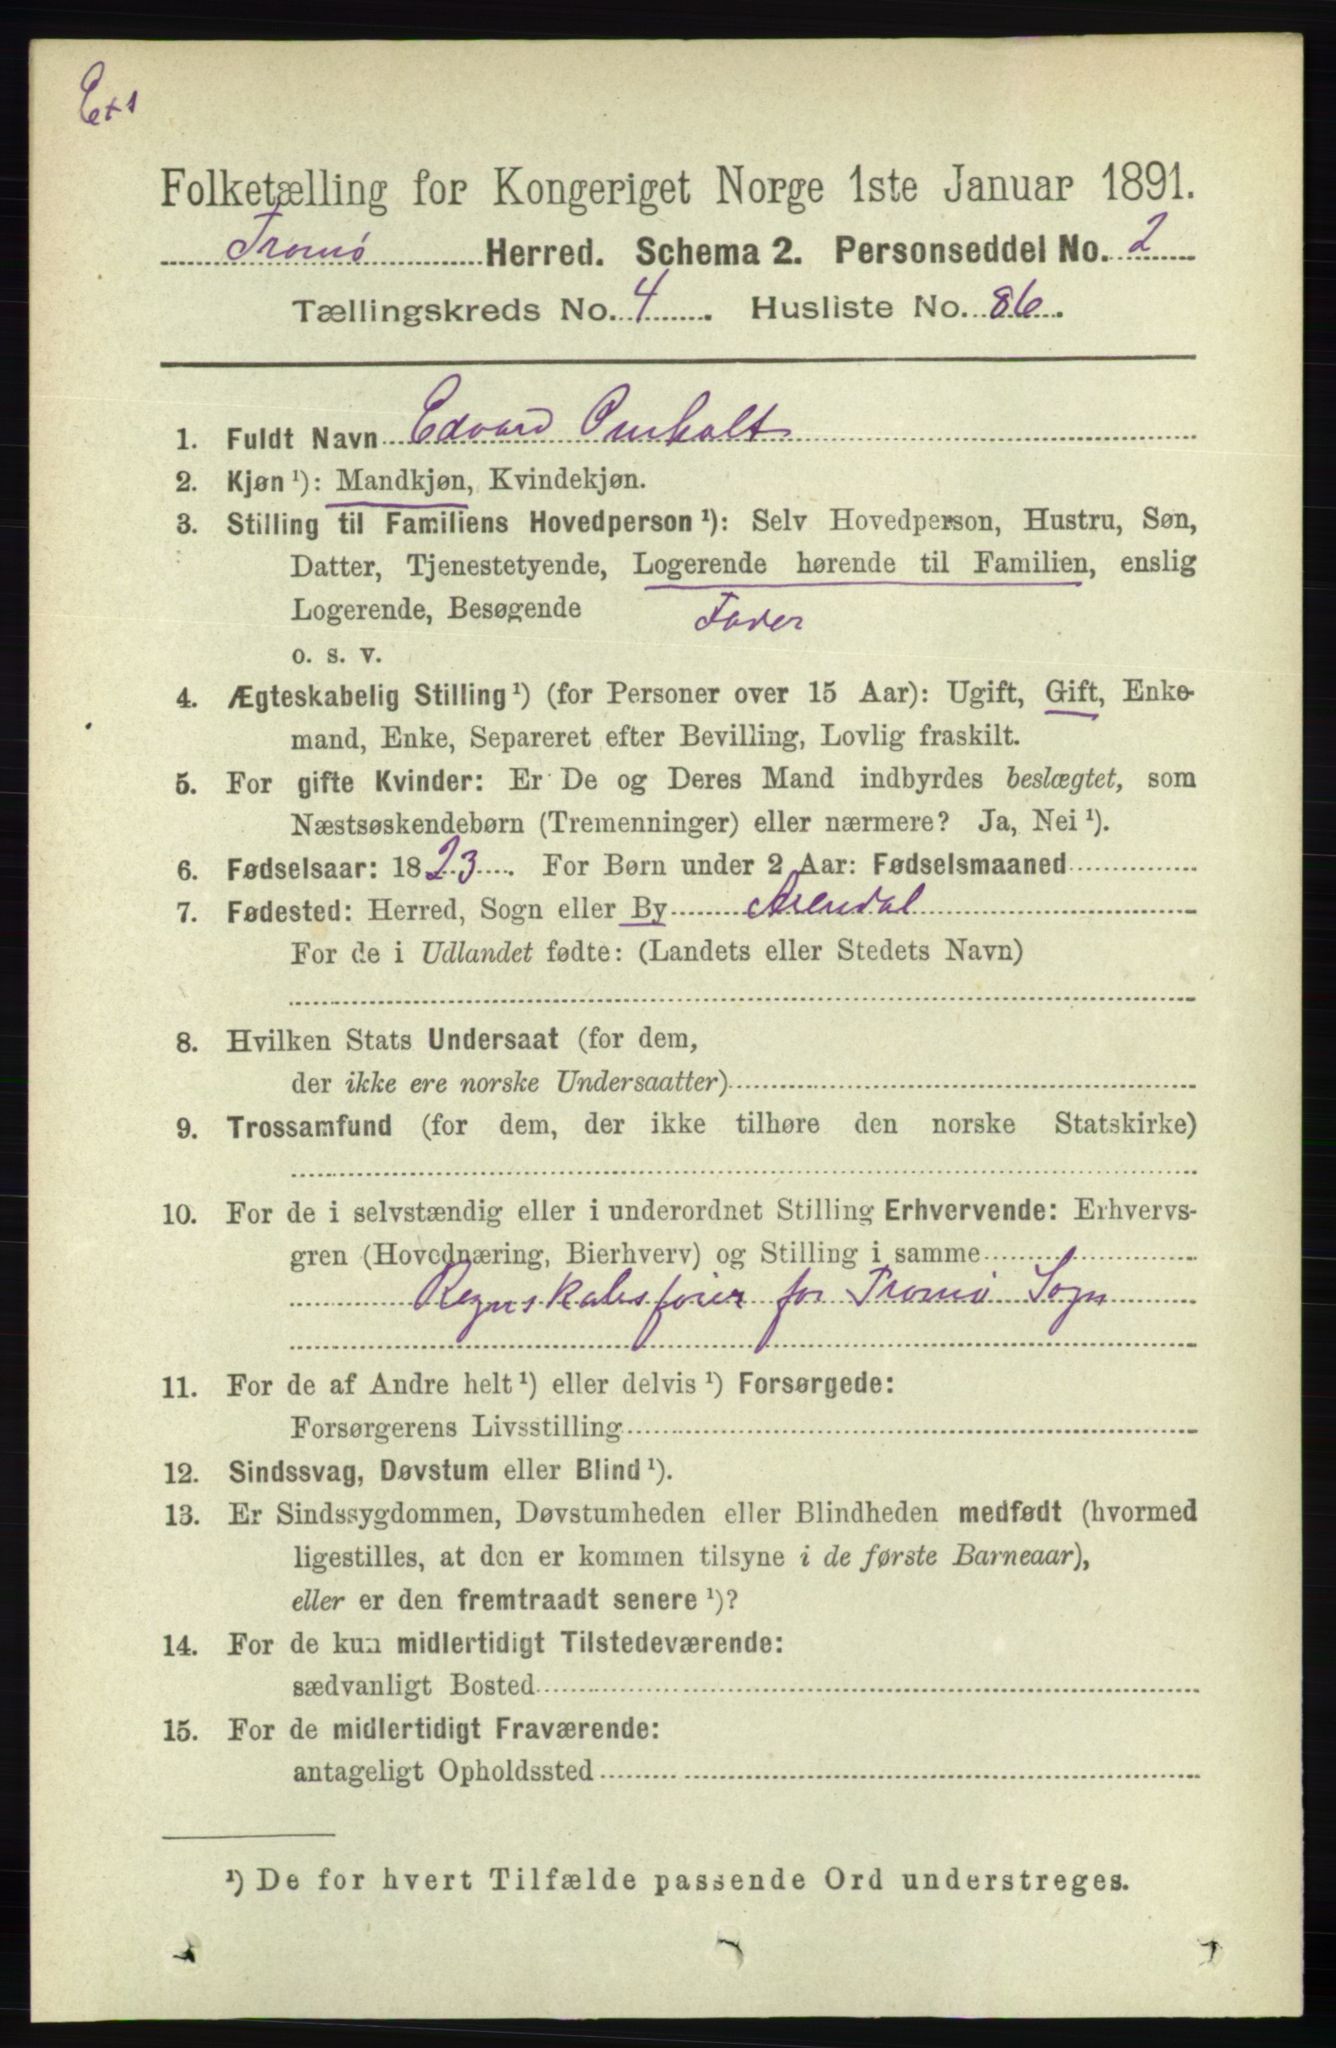 Ex1
Folketælling for Kongeriget Norge 1ste Januar 1891.
Tromø Herred. Schema 2. Personseddel No. 2
Tællingskreds No. 4. Husliste No. 86.
1. Fuldt Navn Edvard Omholt
2. Kjøn ¹): Mandkjøn, Kvindekjøn.
3. Stilling til Familiens Hovedperson ¹): Selv Hovedperson, Hustru, Søn,
Datter, Tjenestetyende, Logerende hørende til Familien, enslig
Logerende, Besøgende Fader
o. s. v.
4. Ægteskabelig Stilling ¹) (for Personer over 15 Aar): Ugift, Gift, Enke-
mand, Enke, Separeret efter Bevilling, Lovlig fraskilt.
5. For gifte Kvinder: Er De og Deres Mand indbyrdes beslægtet, som
Næstsøskendebørn (Tremenninger) eller nærmere? Ja, Nei ¹).
6. Fødselsaar: 1823. For Børn under 2 Aar: Fødselsmaaned
7. Fødested: Herred, Sogn eller By Arendal
For de i Udlandet fødte: (Landets eller Stedets Navn)
8. Hvilken Stats Undersaat (for dem,
der ikke ere norske Undersaatter)
9. Trossamfund (for dem, der ikke tilhøre den norske Statskirke)
10. For de i selvstændig eller i underordnet Stilling Erhvervende: Erhvervs-
gren (Hovednæring, Bierhverv) og Stilling i samme
Regnskabsfører for Tromø Sogn
11. For de af Andre helt ¹) eller delvis ¹) Forsørgede:
Forsørgerens Livsstilling
12. Sindssvag, Døvstum eller Blind ¹).
13. Er Sindssygdommen, Døvstumheden eller Blindheden medfødt (hvormed
ligestilles, at den er kommen tilsyne i de første Barneaar),
eller er den fremtraadt senere ¹)?
14. For de kun midlertidigt Tilstedeværende:
sædvanligt Bosted
15. For de midlertidigt Fraværende:
antageligt Opholdssted
¹) De for hvert Tilfælde passende Ord understreges.